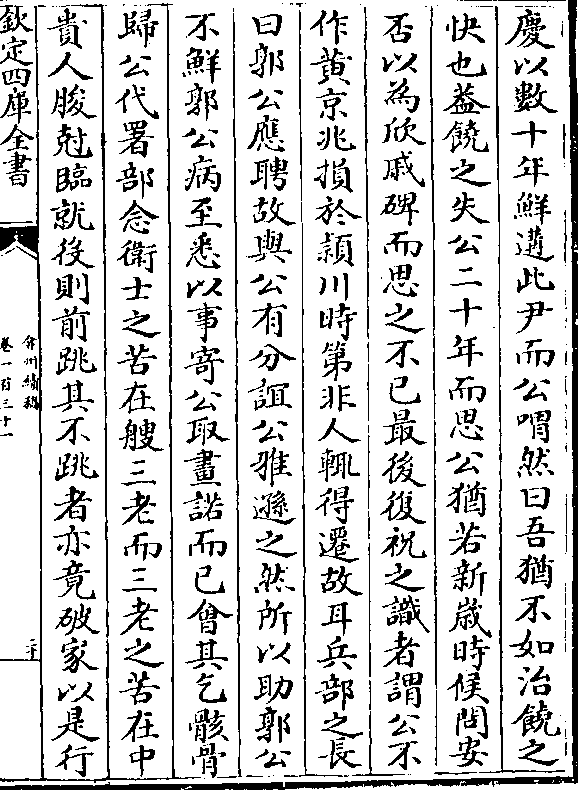 慶以數十年鮮遘此尹而公喟然曰吾猶不如治饒之
快也蓋饒之失公二十年而思公猶若新歲時候問安
否以為欣戚碑而思之不已最後復祝之識者謂公不
作黄京兆損於潁川時第非人輒得遷故耳兵部之長
曰郭公應聘故與公有分誼公雅遜之然所以助郭公
不鮮郭公病至悉以事寄公取畫諾而已會其乞骸骨
歸公代署部念衛士之苦在艘三老而三老之苦在中
貴人朘尅臨就役則前跳其不跳者亦竟破家以是行
欽定四庫全書
弇州續稿
卷一百三十一